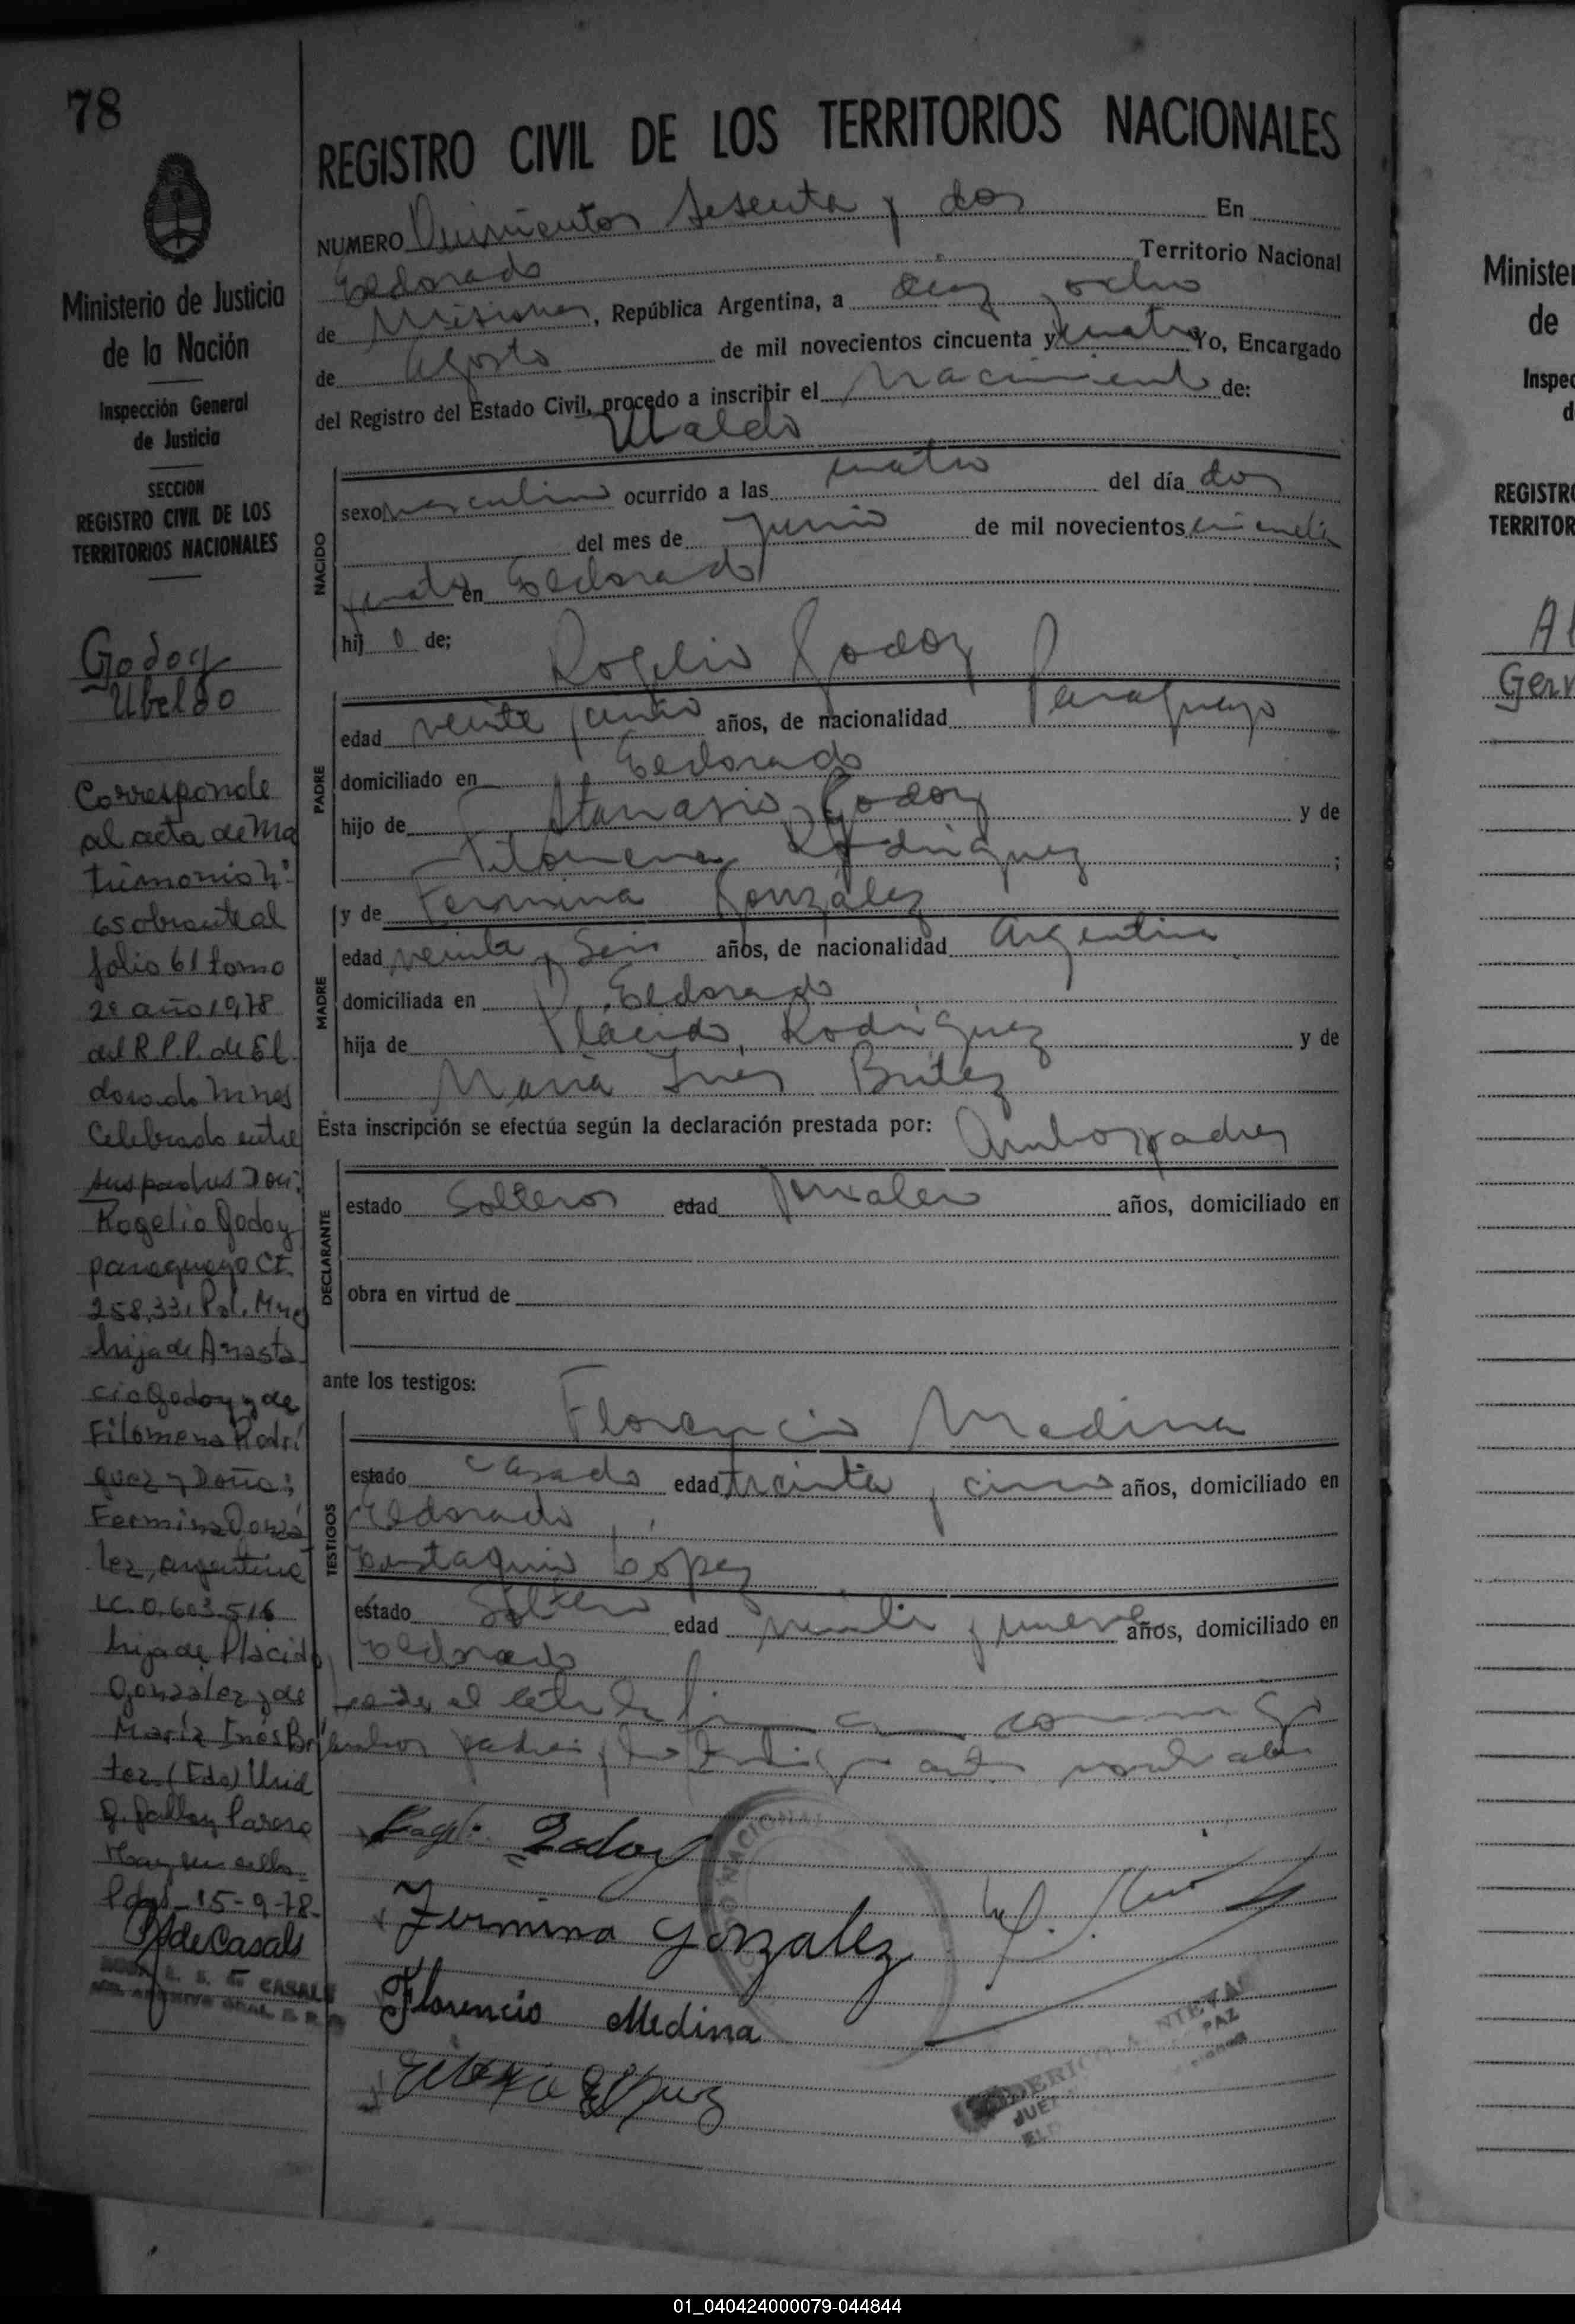 78
Ministerio de Justicia
de la Nación
Inspección General
de Justicia
SECCION
REGISTRO CIVIL DE LOS
TERRITORIOS NACIONALES
Godoy
Ubeldo
Corresponde
al acta de Ma
trimonio Nº
65 obrante al
folio 61 tomo
2º año 1978
del R.P.P. de El
dorado Mnes
Celebrado entre
sus padres Don:
Rogelio Godoy
paraguayo CI.
258.331 Pol. Mnes
hijo de Anasta
cio Godoy y de
Filomena Rodrí
guez y Doña:
Fermina Gonzá
lez, argentina
LC. 0.603.516
hija de Plácido
González y de
María Inés Brí
tez. (Fdo)
Hay un sello
Pdas 15-9-78
de Casals
REGISTRO CIVIL DE LOS TERRITORIOS NACIONALES
NUMERO Quinientos sesenta y dos En
Eldorado Territorio Nacional
de Misiones, República Argentina, a diez y ocho
de Agosto de mil novecientos cincuenta y cuatro Yo, Encargado
del Registro del Estado Civil, procedo a inscribir el Nacimiento de:
Ubaldo
NACIDO
sexo masculino ocurrido a las cuatro del día dos
del mes de Junio de mil novecientos cincuenta
y cuatro en Eldorado
hijo de;
Rogelio Godoy
PADRE
edad veinte y cinco años, de nacionalidad Paraguayo
domiciliado en Eldorado
hijo de Atanasio Godoy y de
Filomena Rodriguez ;
y de Fermina González
MADRE
edad veinte y seis años, de nacionalidad Argentina
domiciliada en Eldorado
hija de Plácido Rodriguez y de
María Ines Britez
Esta inscripción se efectúa según la declaración prestada por: Ambos padres
DECLARANTE
estado Solteros edad años, domiciliado en
obra en virtud de
ante los testigos:
Florencio Medina
TESTIGOS
estado casado edad treinta y cinco años, domiciliado en
Eldorado
Eustaquio López
estado Soltero edad veinte y nueve años, domiciliado en
Eldorado
Leida el acta la firman conmigo
ambos padres y los testigos antes nombrados
Rogelio Godoy
Fermina Gonzalez
Florencio Medina
Ministe
de
Inspec
REGISTR
TERRITOR
01_040424000079-044844